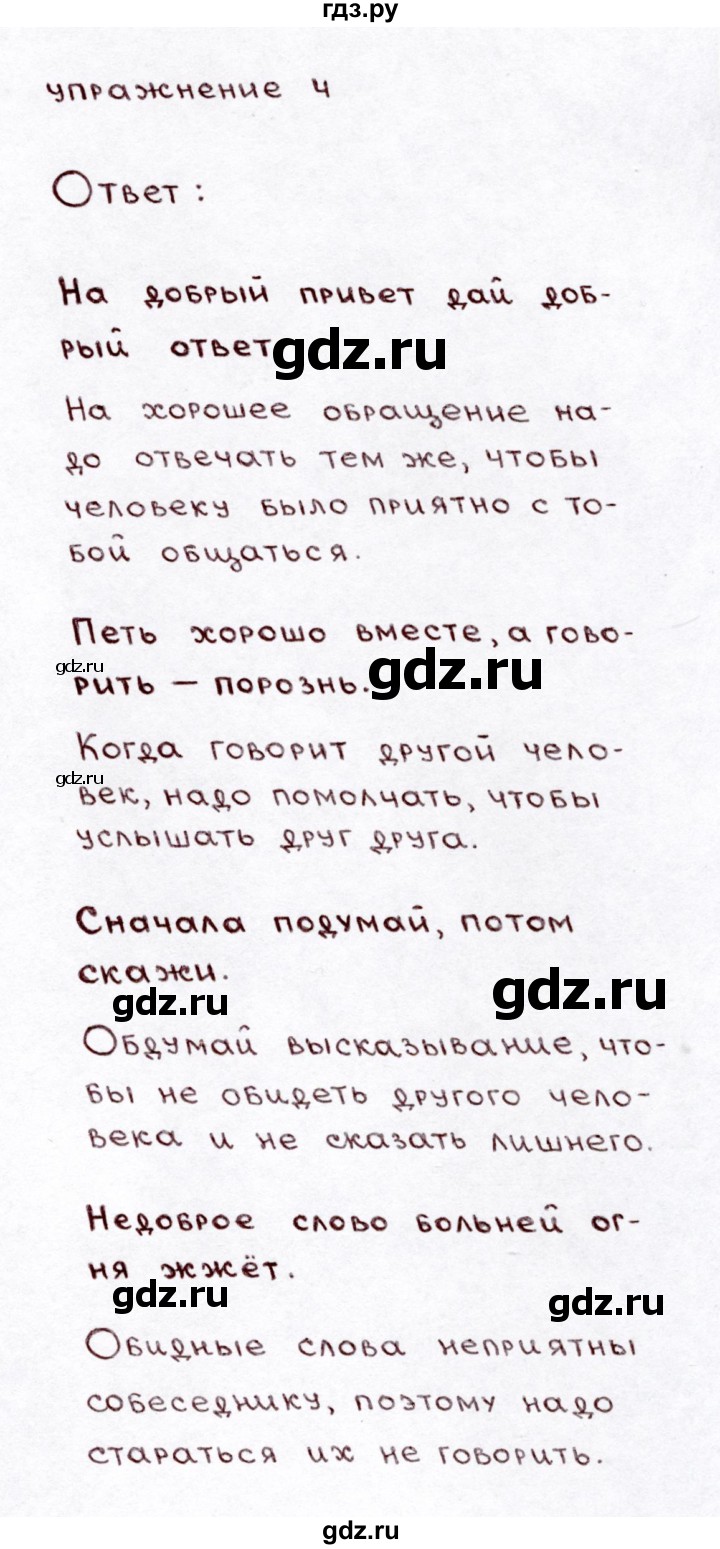 гдз.ру
упражнение 4
Ответ:
На добрый привет дай доб-
рый ответ
gdz.ru
На хорошее обращение на-
до отвечать тем же, чтобы
человеку было приятно с то-
бой общаться.
Петь хорошо вместе, а гово-
gdz.ru
рить – порознь.
gdz.ru
Когда говорит другой чело-
gdz.ru
век, надо помолчать, чтобы
услышать друг друга.
Сначала подумай, потом
скажи.
gdz.ru
gdz.ru
Обдумай высказывание, что-
бы не обидеть другого чело-
века и не сказать лишнего.
Недоброе слово больней ог-
ня жжёт.
gdz.ru
gdz.ru
Обидные слова неприятны
собеседнику, поэтому надо
стараться их не говорить.
gdz.ru